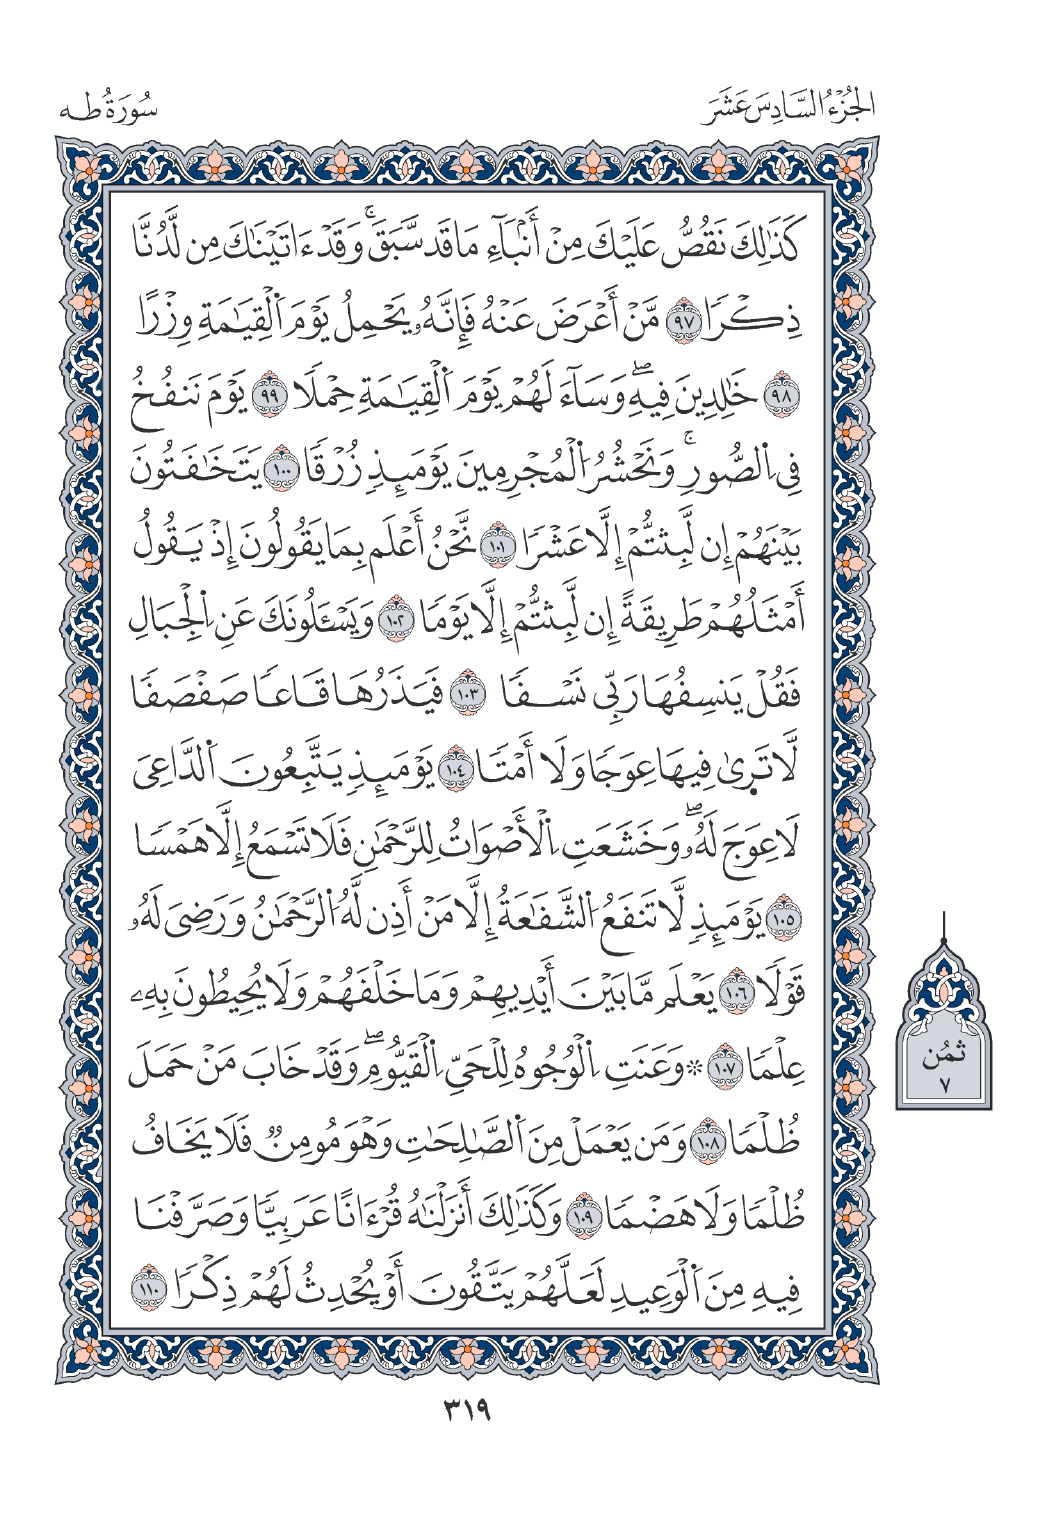 الجُزْءُ السَّادِسَ عَشَرَ
سُورَةُ طه
كَذَٰلِكَ نَقُصُّ عَلَيْكَ مِنْ أَنۢبَآءِ مَا قَد سَّبَقَۚ وَقَدْ ءَاتَيْنَٰكَ مِن لَّدُنَّا
ذِكْرًا ٩٧ مَّنْ أَعْرَضَ عَنْهُ فَإِنَّهُۥ يَحْمِلُ يَوْمَ اَلْقِيَٰمَةِ وِزْرًا
٩٨ خَٰلِدِينَ فِيهِۖ وَسَآءَ لَهُمْ يَوْمَ اَلْقِيَٰمَةِ حِمْلًا ٩٩ يَوْمَ نَنفُخُ
فِى اِلصُّورِۚ وَنَحْشُرُ اُلْمُجْرِمِينَ يَوْمَئِذٍ زُرْقًا ١٠٠ يَتَخَٰفَتُونَ
بَيْنَهُمْ إِن لَّبِثتُّمْ إِلَّا عَشْرًا ١٠١ نَّحْنُ أَعْلَم بِمَا يَقُولُونَ إِذْ يَقُولُ
أَمْثَلُهُمْ طَرِيقَةً إِن لَّبِثتُّمْ إِلَّا يَوْمًا ١٠٢ وَيَسْـَٔلُونَكَ عَنِ اِلْجِبَالِ
فَقُلْ يَنسِفُهَا رَبِّى نَسْفًا ١٠٣ فَيَذَرُهَا قَاعًا صَفْصَفًا
لَّا تَرىٰ فِيهَا عِوَجًا وَلَا أَمْتًا ١٠٤ يَوْمَئِذٍ يَتَّبِعُونَ اَلدَّاعِىَ
لَا عِوَجَ لَهُۥۖ وَخَشَعَتِ اِلْأَصْوَاتُ لِلرَّحْمَٰنِ فَلَا تَسْمَعُ إِلَّا هَمْسًا
١٠٥ يَوْمَئِذٍ لَّا تَنفَعُ اُلشَّفَٰعَةُ إِلَّا مَنْ أَذِن لَّهُ اُلرَّحْمَٰنُ وَرَضِىَ لَهُۥ
قَوْلًا ١٠٦ يَعْلَم مَّا بَيْنَ أَيْدِيهِمْ وَمَا خَلْفَهُمْ وَلَا يُحِيطُونَ بِهِۦ
عِلْمًا ١٠٧ ۞ وَعَنَتِ اِلْوُجُوهُ لِلْحَىِّ اِلْقَيُّومِۖ وَقَدْ خَابَ مَنْ حَمَلَ
ظُلْمًا ١٠٨ وَمَن يَعْمَلْ مِنَ اَلصَّٰلِحَٰتِ وَهْوَ مُومِنٌ فَلَا يَخَافُ
ظُلْمًا وَلَا هَضْمًا ١٠٩ وَكَذَٰلِكَ أَنزَلْنَٰهُ قُرْءَانًا عَرَبِيًّا وَصَرَّفْنَا
فِيهِ مِنَ اَلْوَعِيدِ لَعَلَّهُمْ يَتَّقُونَ أَوْ يُحْدِثُ لَهُمْ ذِكْرًا ١١٠
ثمُن
٧
٣١٩